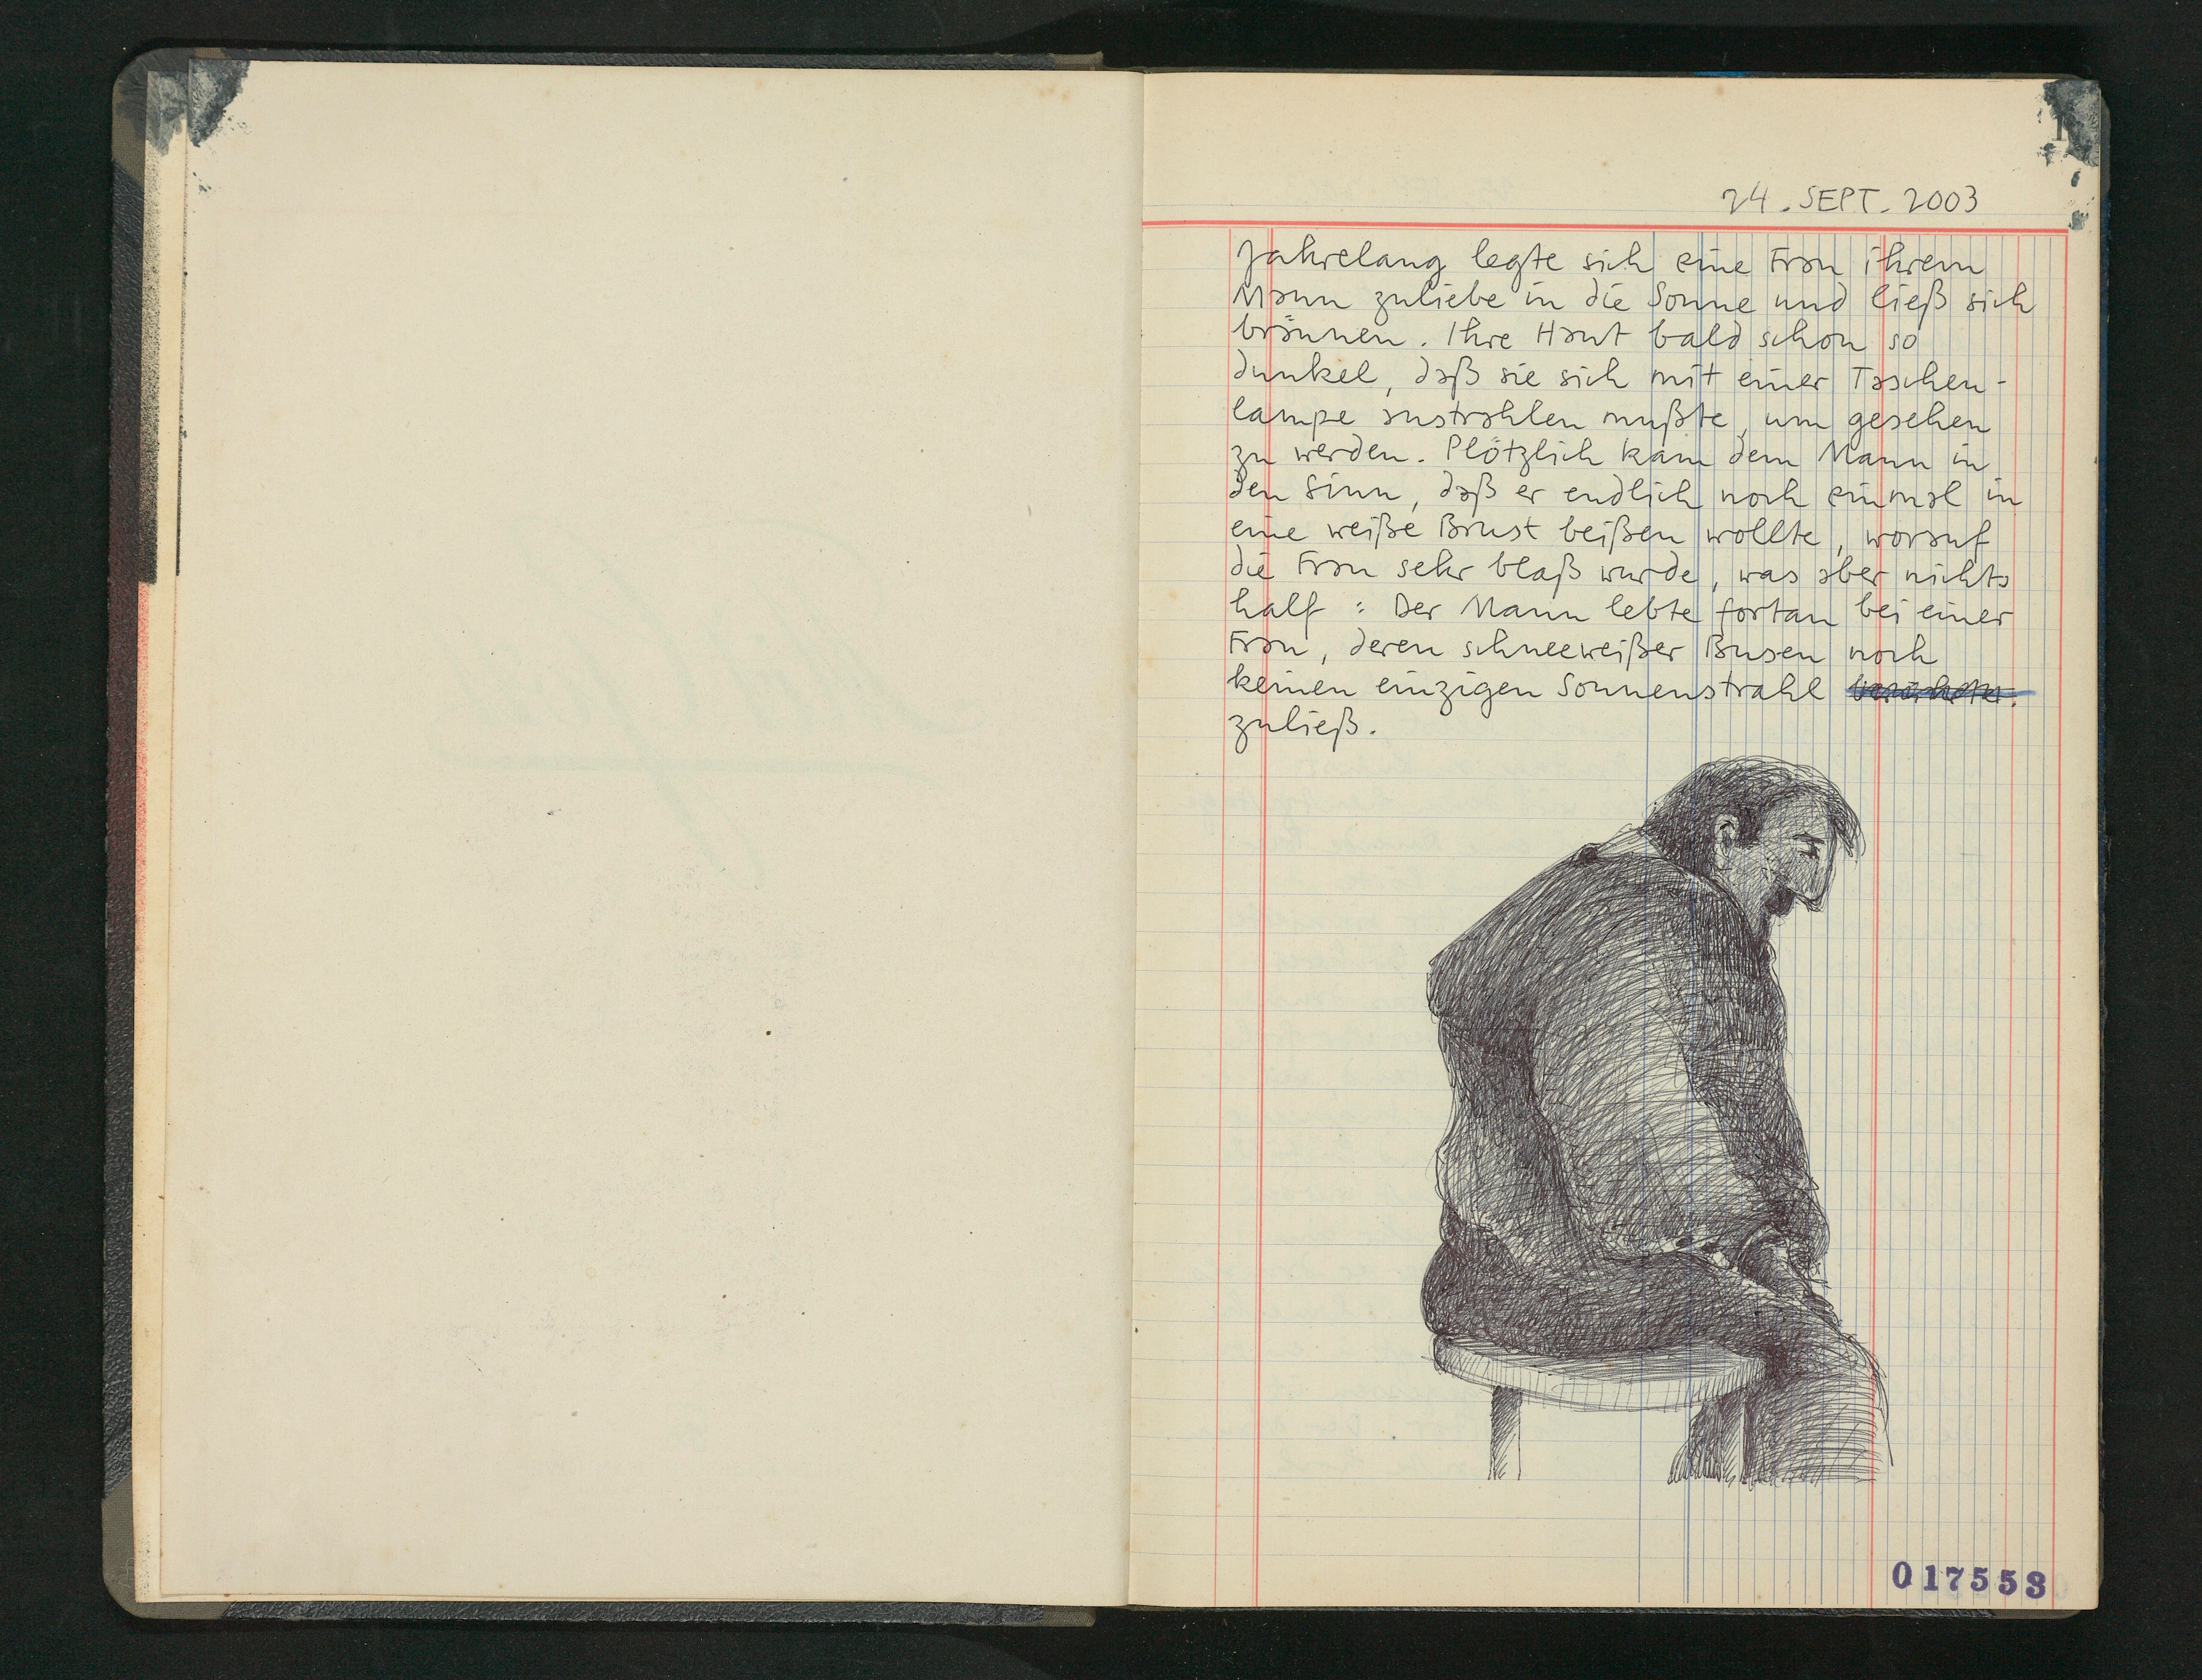 24. SEPT. 2003
Jahrelang legte sich eine Frau ihrem
Mann zuliebe in die Sonne und ließ sich
bräunen. Ihre Haut bald schon so
dunkel, daß sie sich mit einer Taschen-
lampe anstrahlen mußte, um gesehen
zu werden. Plötzlich kam dem Mann in
den Sinn, daß er endlich noch einmal in
eine weiße Brust beißen wollte, worauf
die Frau sehr blaß wurde, was aber nichts
half: Der Mann lebte fortan bei einer
Frau, deren schneeweißer Busen noch
keinen einzigen Sonnenstrahl
zuließ.
017553